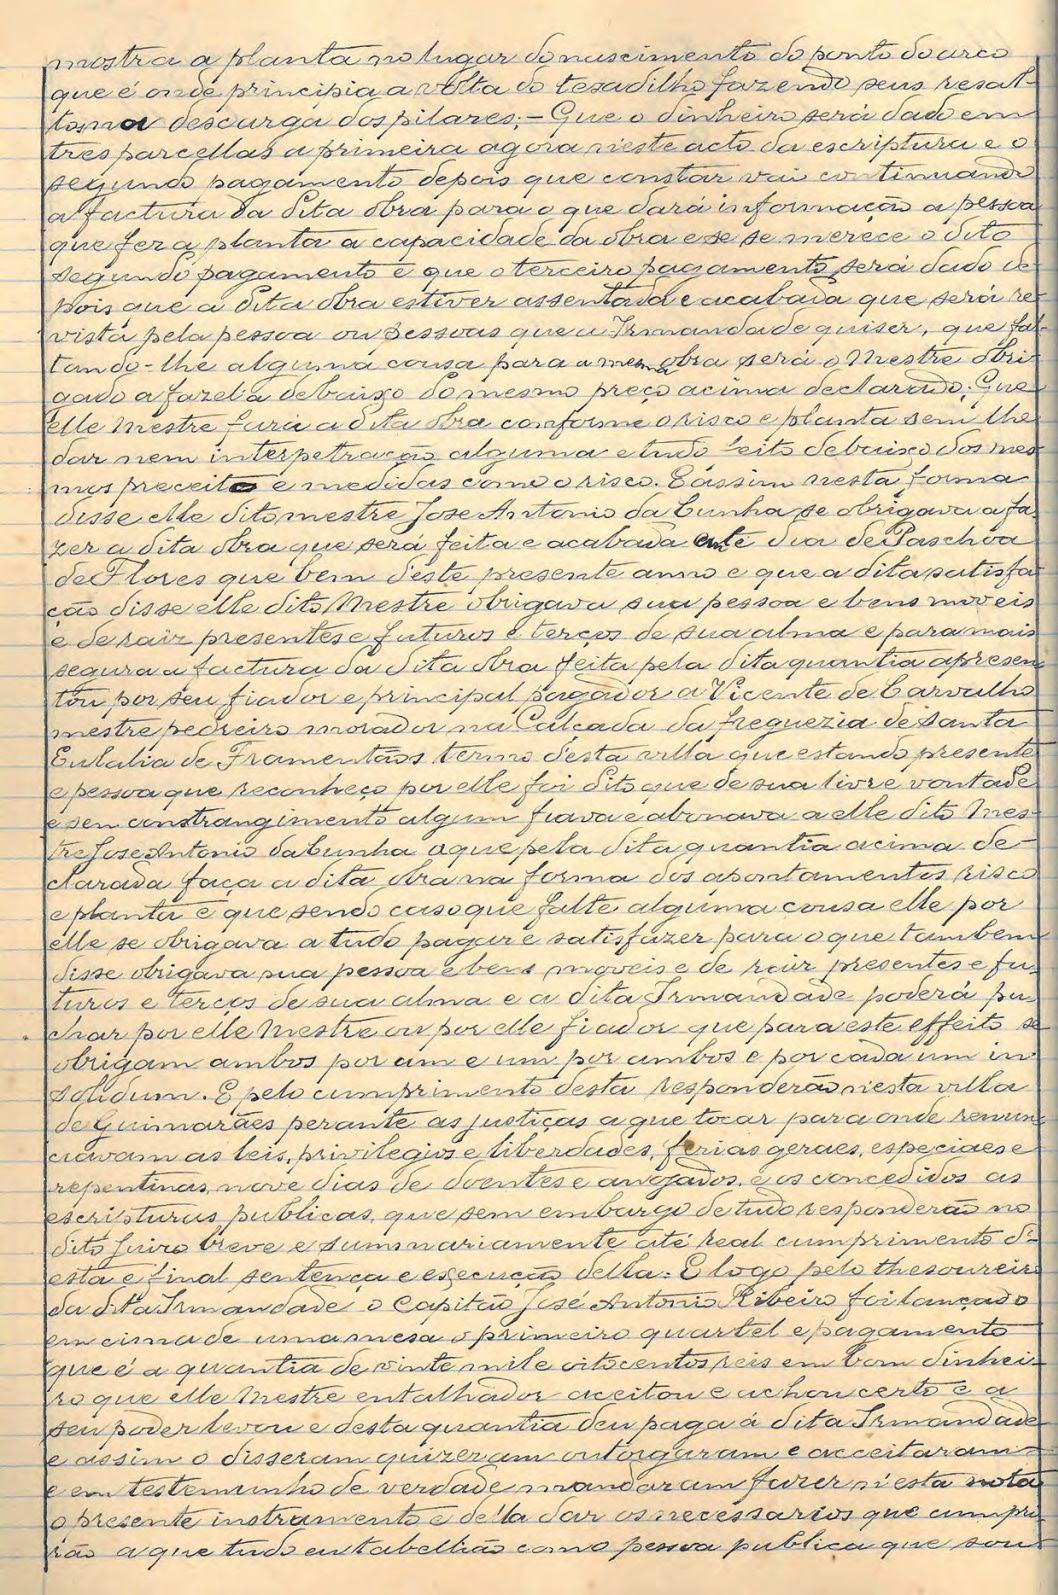 mostra a planta no lugar do nascimento do ponto do arco
que é onde principia a volta do tesadilho fazendo seus resal-
tos na descarga dos pilares; — Que o dinheiro será dado em
tres parcellas a primeira agora n'este acto da escriptura e o
segundo pagamento depois que constar vai continuando
a factura da dita obra para o que dará informação a pessoa
que fez a planta a capacidade da obra e se se merece o dito
segundo pagamento e que o terceiro pagamento será dado de-
pois que a dita obra estiver assentada e acabada que será re-
vista pela pessoa ou pessoas que a Irmandade quiser, que fal-
tando-lhe alguma cousa para a mesma obra será o Mestre obri-
gado a fazel-a debaixo do mesmo preço acima declarado; Que
elle Mestre fará a dita obra conforme o risco e planta sem lhe
dar nem interpetração alguma e tudo feito debaixo dos mes-
mos preceitos e medidas como o risco. E assim nesta forma
disse elle dito mestre Jose Antonio da Cunha se obrigava a fa-
zer a dita obra que será feita e acabada até dia de Paschoa
de Flores que bem d'este presente anno e que a dita satisfa-
ção disse elle dito Mestre obrigava sua pessoa e bens moveis
e de raiz presentes e futuros e terços de sua alma e para mais
segura a factura da dita obra feita pela dita quantia apresen-
tou por seu fiador e principal pagador a Vicente de Carvalho
mestre pedreiro morador na Calçada da freguezia de Santa
Eulalia de Framentãos termo d'esta villa que estando presente
e pessoa que reconheço por elle foi dito que de sua livre vontade
e sem constrangimento algum fiava e abonava a elle dito Mes-
tre Jose Antonio da Cunha a que pela dita quantia acima de-
clarada faça a dita obra na forma dos apontamentos risco
e planta e que sendo caso que falte alguma cousa elle por
elle se obrigava a tudo pagar e satisfazer para o que tambem
disse obrigava sua pessoa e bens moveis e de raiz presentes e fu-
turos e terços de sua alma e a dita Irmandade poderá pu-
char por elle Mestre ou por elle fiador que para este effeito se
obrigam ambos por um e um por ambos e por cada um in
solidum. E pelo cumprimento desta responderão n'esta villa
de Guimarães perante as justiças a que tocar para onde renun-
ciavam as leis, privilegios e liberdades, ferias geraes, especiaes e
repentinas, nove dias de doentes e anojados, e os concedidos as
escripturas publicas, que sem embargo de tudo responderão no
dito juizo breve e summariamente até real cumprimento d'-
esta e final sentença e execução della: E logo pelo thesoureiro
da dita Irmandade o Capitão José Antonio Ribeiro foi lançado
em cima de uma mesa o primeiro quartel e pagamento
que é a quantia de vinte mil e oitocentos reis em bom dinhei-
ro que elle Mestre entalhador aceitou e achou certo e a
seu poder levou e desta quantia deu paga á dita Irmandade
e assim o disseram quizeram outorgaram e acceitaram
e em testemunho de verdade mandaram fazer n'esta nota
o presente instrumento e de'lla dar os necessarios que cumpri-
rão a que tudo eu tabellião como pessoa publica que sou